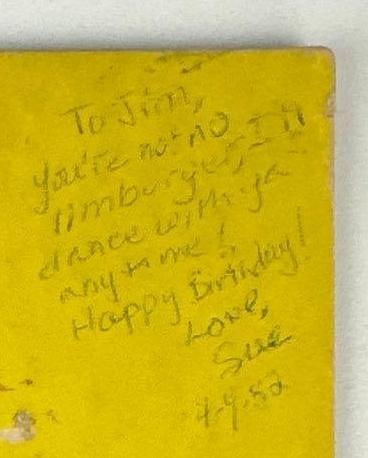 To Jim,
You're not NO
limburger, I'll
dance with ya
anytime!
Happy Birthday!
Love,
Sue
4-9-82